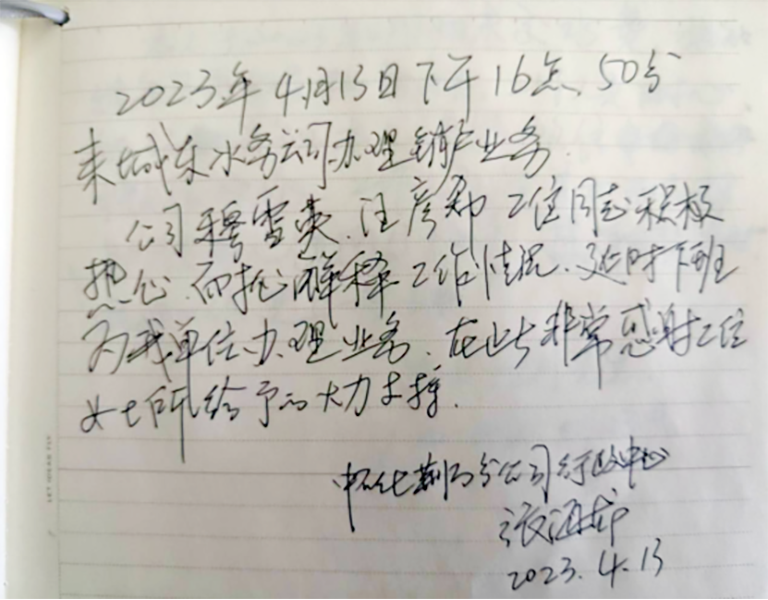 2023年4月13日下午16点、50分
来城东水务公司办理销户业务.
公司穆雪英、汪彦 二位同志积极
热心、而耐心解释工作情况、延时下班
为我单位办理业务、在此非常感谢二位
女士所给予的大力支持.
中石化荆门分公司行政中心
张 
2023.4.13
LET IDEAS FLY